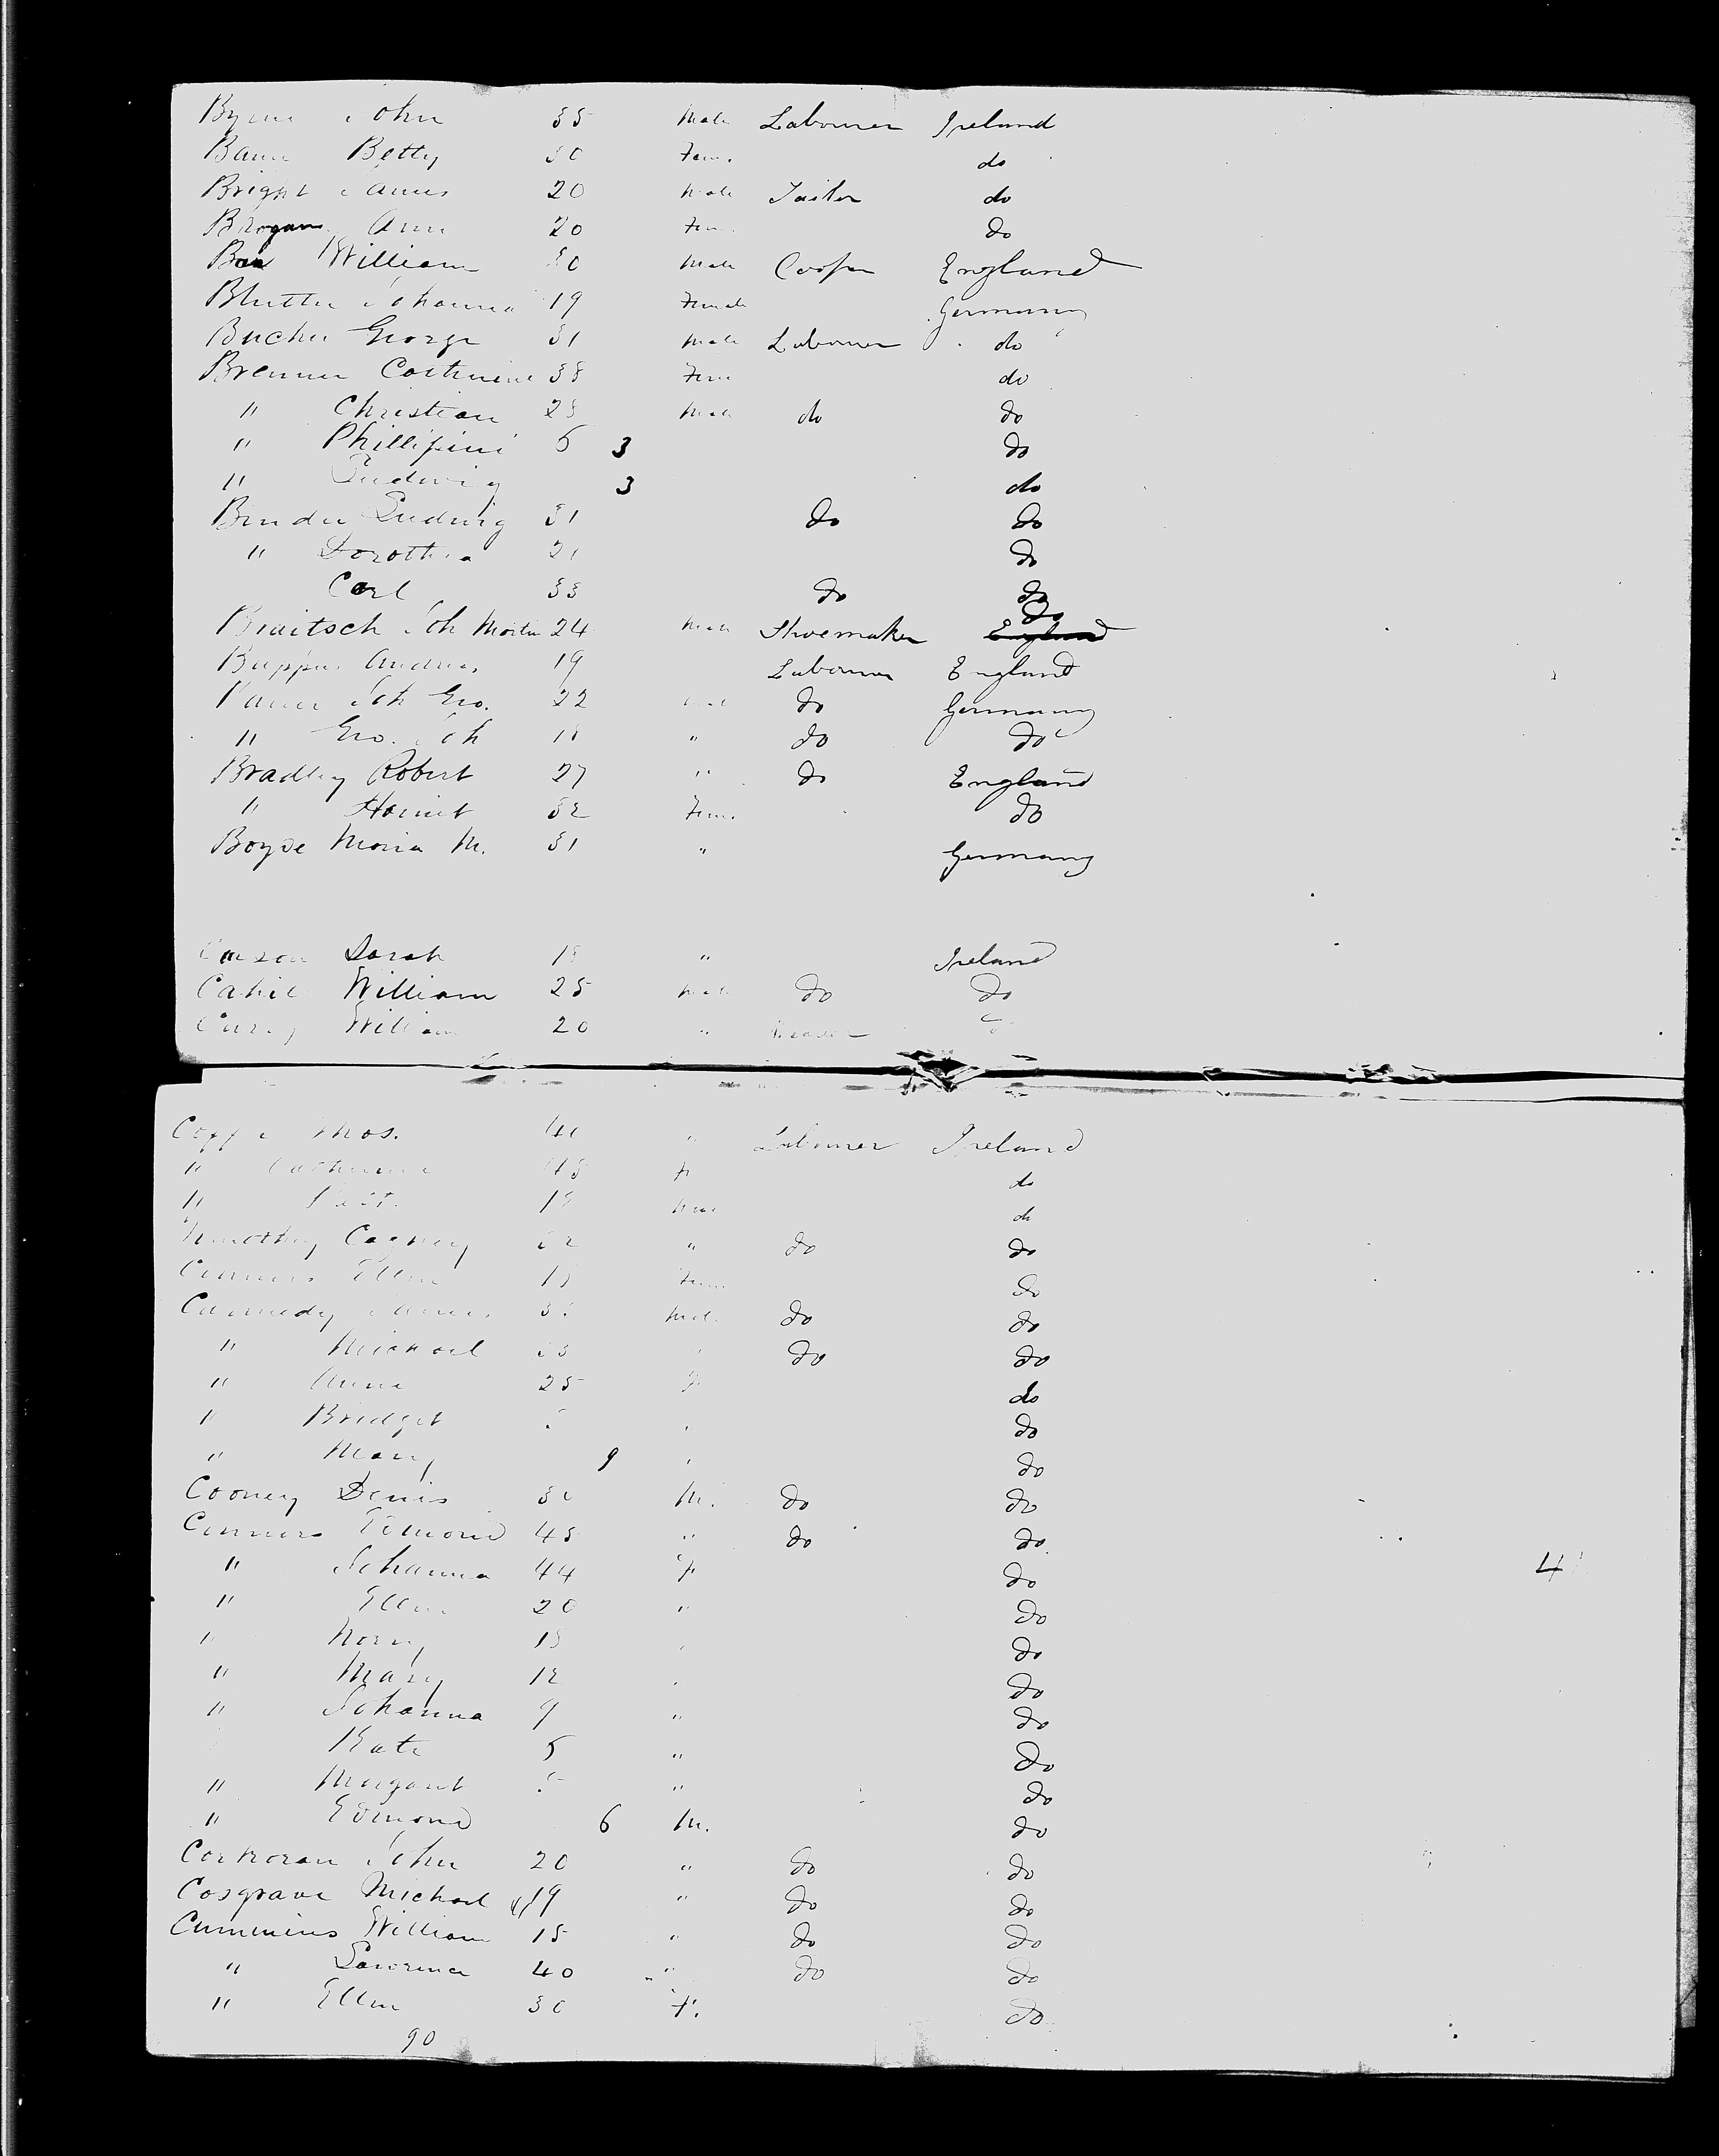 Byrne John 35 Male Labourer Ireland
Betty 30 Fem. do
Bright James 20 Male Tailor do
Brogan Ann 20 Fem. do
William 30 Male Cooper England
Johanna 19 Female Germany
Bucher George 31 Male Labourer do
Brenner Catherine 38 Fem do
" Christian 28 Male do do
" Phillipini 5 3 do
" Ludwig 3 do
Bender Ludwig 31 do do
" Dorothea 21 do
Carl 33 do do
Joh Martin 24 Male Shoemaker do
19 Labourer England
Joh Geo. 22 do Germany
" Geo. Joh 18 " do do
Bradley Robert 27 " do England
" Harriet 32 Fem. do
Boyde Maria M. 31 " Germany
Carson Sarah 18 " Ireland
Cahil William 25 Male do do
William 20 " do
Thos. " Labourer Ireland
" Catherine F do
" do
Timothy Cagney " do do
Connors Ellen Fem. do
James Mal. do do
" Michael 33 do do
" Anna 25 F do
" Bridget do
" Mary 9 do
Cooney Denis 30 M. do do
Connors Edmond 45 " do do
" Johanna 44 F do
" Ellen 20 " do
" Nory 18 do
" Mary 12 do
" Johanna 9 " do
Kate 5 " do
" Margaret " do
" Edmond 6 M. do
Corkoran John 20 " do do
Cosgrave Michael 19 " do do
Cummins William 15 " do do
" Lawrence 40 " do do
" Ellen 30 F. do
90
4